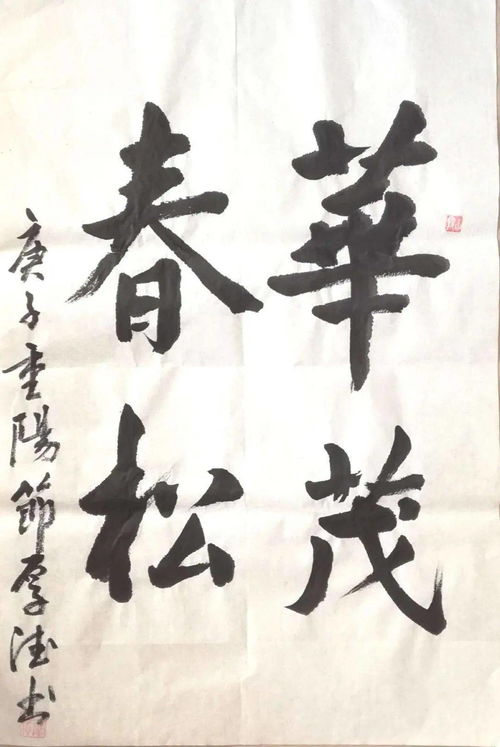 華茂
春松
庚子重陽節厚德书